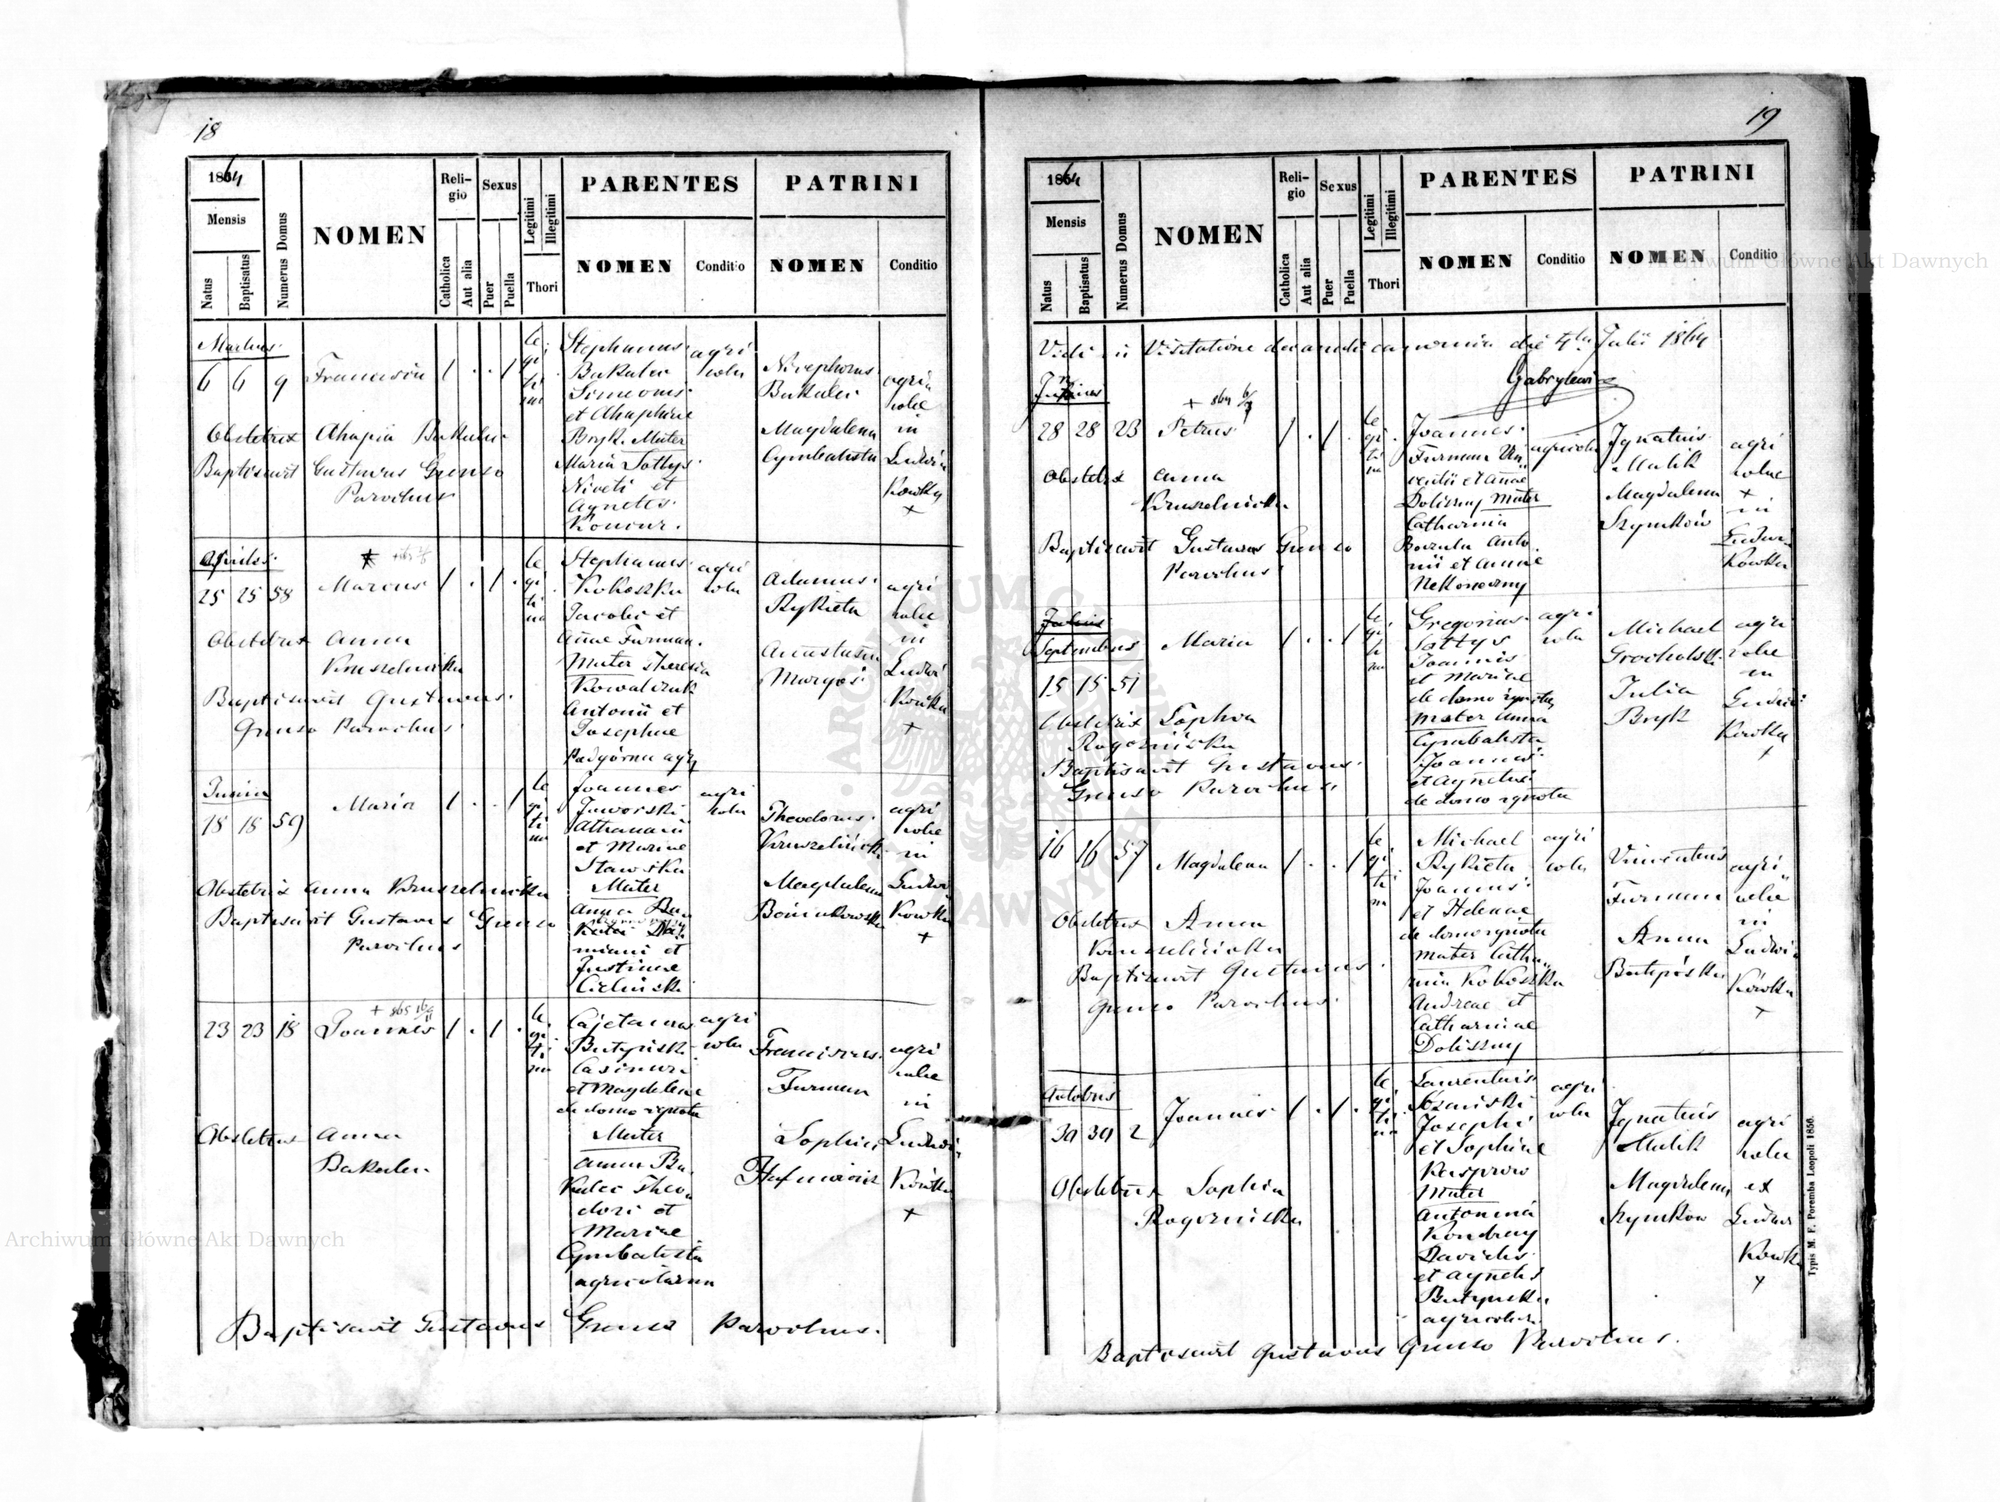 18
1864
Mensis
Natus
Baptisatus
Numerus Domus
NOMEN
Religio
Catholica
Aut alia
Sexus
Puer
Puella
Legitimi
Illegitimi
Thori
PARENTES
NOMEN
Conditio
PATRINI
NOMEN
Conditio
Martius
6 6 9
Francisca
1 . . 1
legitimi
Stephanus
Bakalec
Simeonis
et Ahaphiae
Bryk Mater
Maria Sottys
Niceti et
Agnetis
agricola
Nicephorus
Bakalec
Magdalena
Cymbalista
agricolae
in
Ludwi
kowka
+
Obstetrix Ahapia Bakalec
Baptisavit Gustavus Grenso
Parochus
Aprilis
25 25 58
Marcus
1 . 1 .
Stephanus
Kokoszka
Jacobi et
Annae Furman
Mater Theresia
Kowalczuk
Antonii et
Josephae
Podgórna
agricola
Adamus
Rykieta
Anastasia
agricolae
in
Ludwi
kowka
+
Obstetrix Anna
Kruszelnicka
Baptisavit Gustavus
Grenso Parochus
Junius
18 18 59
Maria
1 . . 1
Joannes
Jaworski
Athanasii
et Mariae
Stawiska
Mater
Anna
miani et
Justinae
Cieliński
agricola
Theodorus
Kruszelnicki
Magdalena
Boniakowska
agricolae
in
Ludwi
kowka
+
Obstetrix Anna Kruszelnicka
Baptisavit Gustavus Grenso
Parochus
23 23 18
Joannes
1 . 1 .
Cajetanus
Butyński
Casimiri
et Magdalenae
de domo ignota
Mater
Anna Ba
kalec Theo
dori et
Mariae
Cymbalista
agricolarum
agricola
Franciscus
Furman
Sophia
agricolae
in
Ludwi
kowka
+
Obstetrix Anna
Bakalec
Baptisavit Gustavus Grenso Parochus.
19
1864
Mensis
Natus
Baptisatus
Numerus Domus
NOMEN
Religio
Catholica
Aut alia
Sexus
Puer
Puella
Legitimi
Illegitimi
Thori
PARENTES
NOMEN
Conditio
PATRINI
NOMEN
Conditio
Vidi in Visitatione decanali canonica die 4ta Julii 1864
Gabrylewicz
Junius
28 28 23
Petrus
1 . 1 .
Joannes
Furman Vin
centii et Annae
Doliszny Mater
Catharina
Anto
nii et Annae
Niekonieczny
agricola
Ignatius
Malik
Magdalena
Szymków
agricolae
+
in
Ludwi
kowka
Obstetrix Anna
Kruszelnicka
Baptisavit Gustavus Grenso
Parochus
Julius
Septembris
15 15 51
Maria
1 . . 1
Gregorius
Sottys
Joannis
et Mariae
de domo ignota
Mater Anna
Cymbalista
Joannis
et Agnetis
de domo ignota
agricola
Michael
Grocholski
Julia
Bryk
agricolae
in
Ludwi
kowka
+
Obstetrix Sophia
Rogoznicka
Baptisavit Gustavus
Grenso Parochus
16 16 57
Magdalena
1 . . 1
Michael
Rykieta
Joannis
et Helenae
de domo ignota
Mater Catha
rina Kokoszka
Andreae et
Catharinae
Doliszny
agricola
Vincentius
Furman
Anna
Butyńska
agricolae
in
Ludwi
kowka
+
Obstetrix Anna
Kruszelnicka
Baptisavit Gustavus
Grenso Parochus
Octobris
30 30 2
Joannes
1 . 1 .
Laurentius
Josephi
et Sophiae
Kasprow
Mater
Antonina
Kondray
Davidis
et Agnetis
Butynska
agricolar.
agricola
Ignatius
Malik
Magdalena
Szymkow
agricolae
ex
Ludwi
kowka
+
Obstetrix Sophia
Rogoznicka
Baptisavit Gustavus Grenso Parochus.
Typis M. F. Poremba Leopoli 1856.
Archiwum Główne Akt Dawnych
Archiwum Główne Akt Dawnych
ARCHIWUM GŁÓWNE AKT DAWNYCH